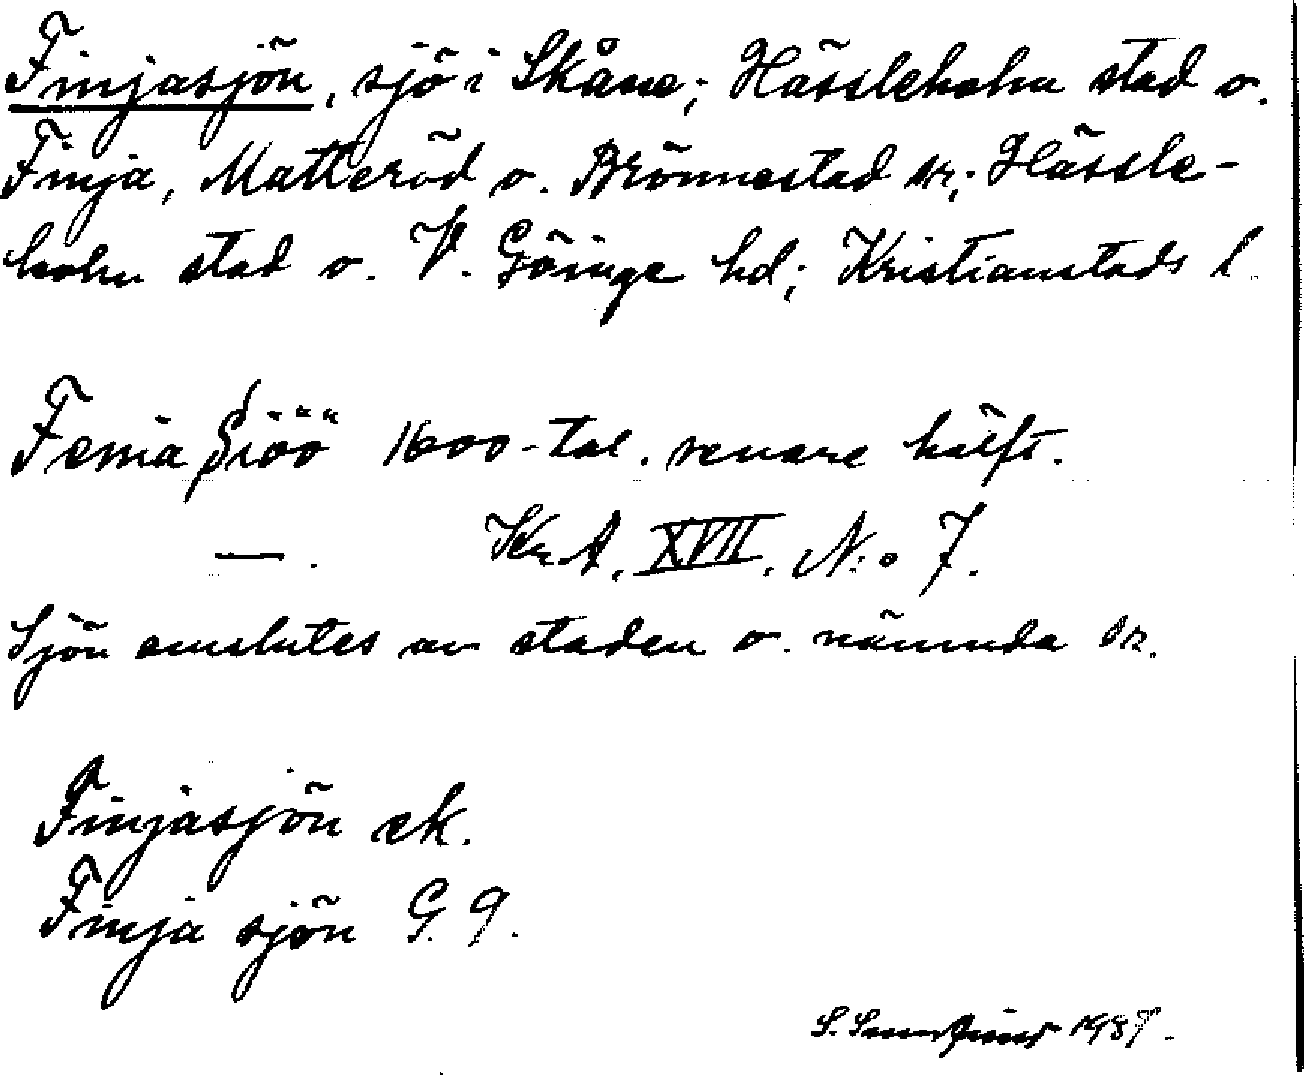 Finjasjön, sjö i Skåne; Hässleholm stad o.
Finja, Matteröd o. Brönnestad sr; Hässle-
holm stad o. V. Göinge hd; Kristianstads l.
Femia Siöö 1600-tal. senare hälft.
—. KrA. XVII. N:o 7.
Sjön omslutes av staden o. nämnda sr.
Finjasjön ek.
Finja sjön G. 9.
S. 1937.